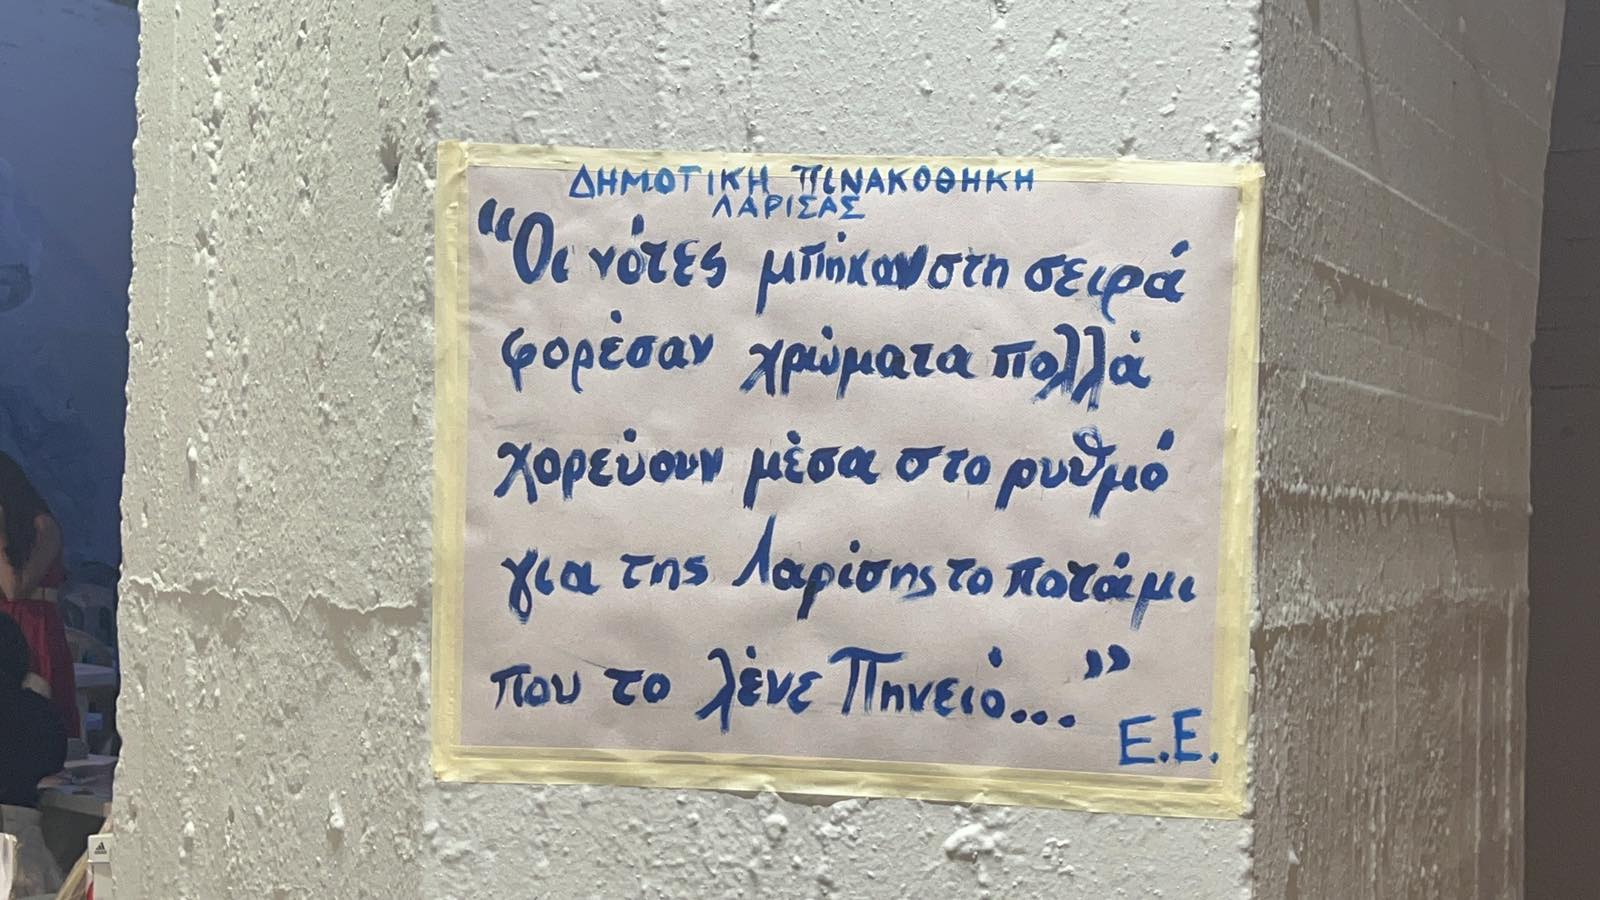 ΔΗΜΟΤΙΚΗ ΠΙΝΑΚΟΘΗΚΗ
ΛΑΡΙΣΑΣ
“Οι νότες μπήκαν στη σειρά
φορέσαν χρώματα πολλά
χορεύουν μέσα στο ρυθμό
για της Λαρίσης το ποτάμι
που το λένε Πηνειό...”
Ε.Ε.